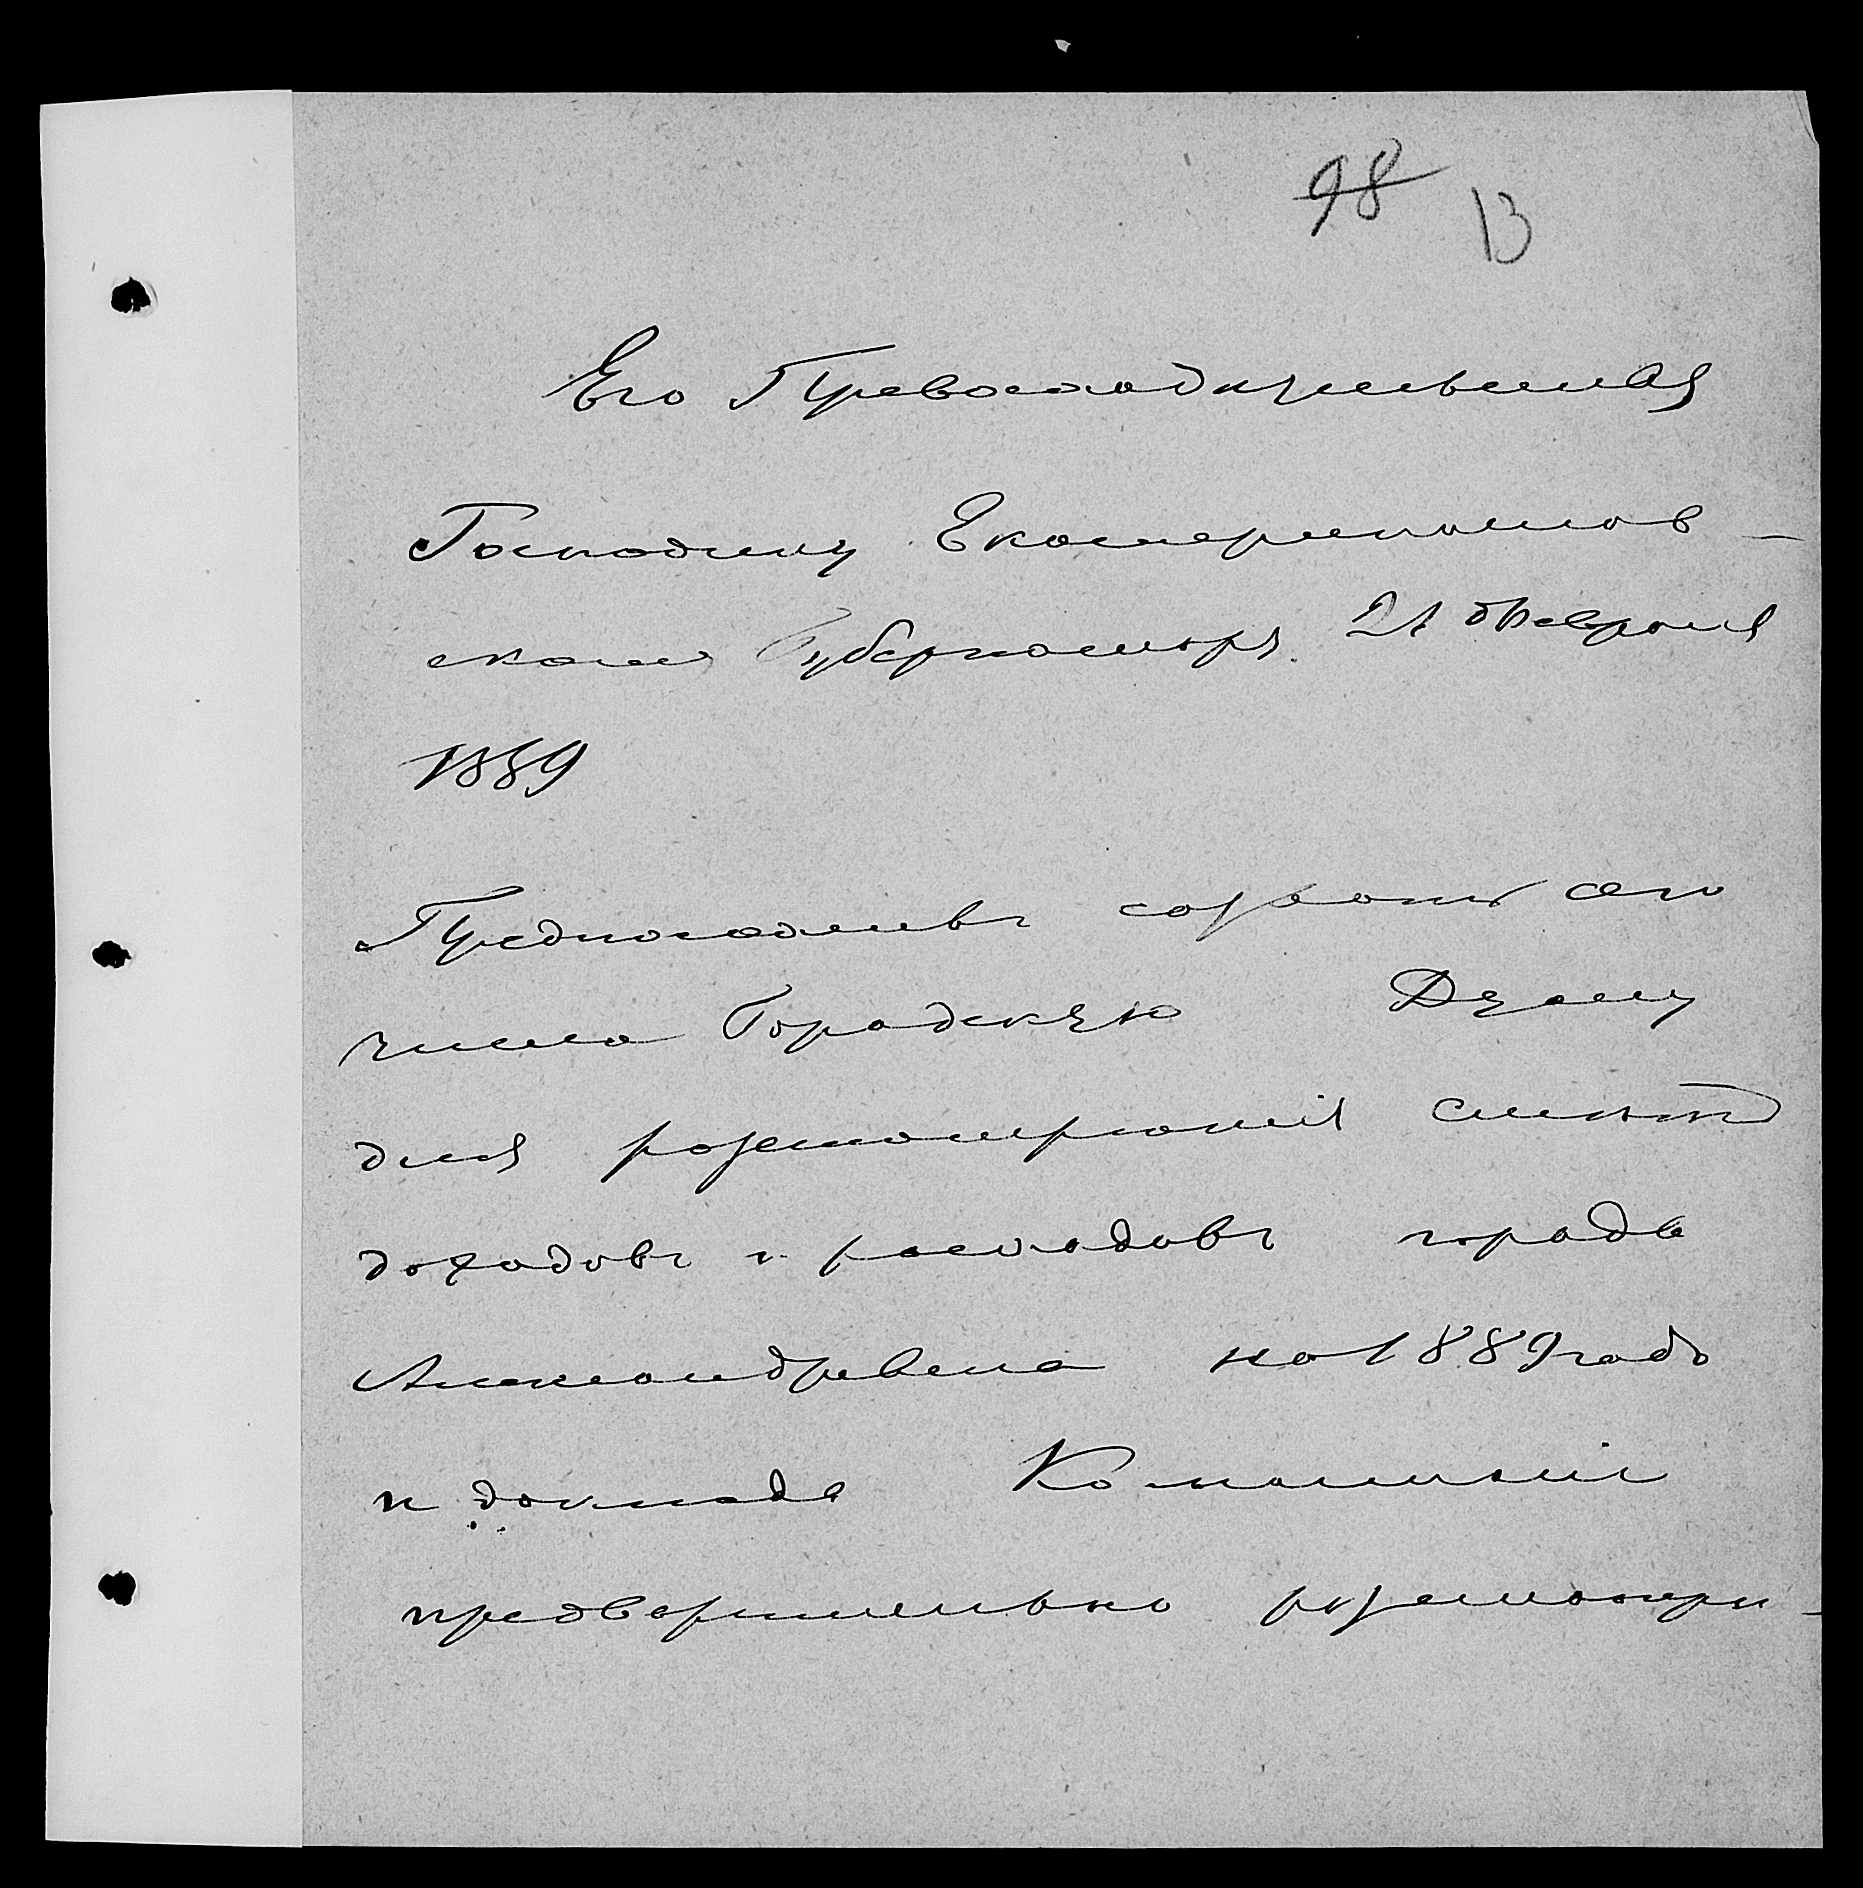 98 13
Его Превосходительства
Господину Екатеринослав-
скому Губернатору. 21 Февраля
1889
Предположивъ созвать сего
числа Городскую Думу
для разсмотрѣнія смѣты
доходовъ и расходовъ города
Александровска на 1889 годъ
и доклада Коммисіи
предварительно разсматри-